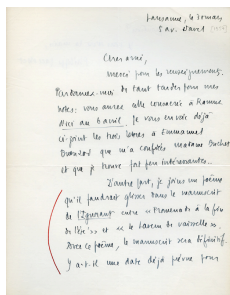 Lausanne, le 30 mars
5 av. Davel
Cher ami,
merci pour les renseignements.
Pardonnez-moi de tant tarder pour mes
notes : vous aurez celle consacrée à Ramuz
ici au
Je vous envoie déjà
ci-joint les trois lettres à Emmanuel
Buenzod que m'a confiées madame Buchet
et que je trouve fort intéressantes...
D'autre part, je joins un poème
qu'il faudrait glisser dans le manuscrit
de l'Ignorant entre « Promenade à la fin
de l'été » et « Le
». 
Avec ce poème, le manuscrit sera définitif.
Y a-t-il une date déjà prévue pour